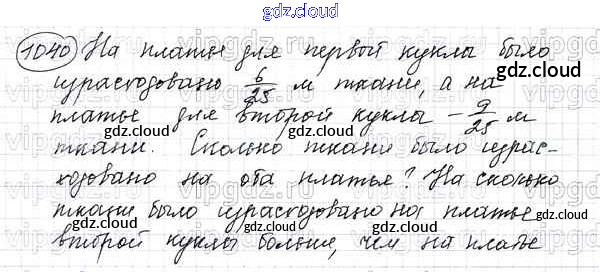 gdz.cloud
1040 На платье для первой куклы было
израсходовано 6/25 м ткани, а на
gdz.cloud
платье для второй куклы – 9/25 м
gdz.cloud gdz.cloud
ткани. Сколько ткани было израс-
ходовано на оба платья? На сколько
gdz.cloud
ткани было израсходовано на платье
второй куклы больше, чем на платье
gdz.cloud gdz.cloud